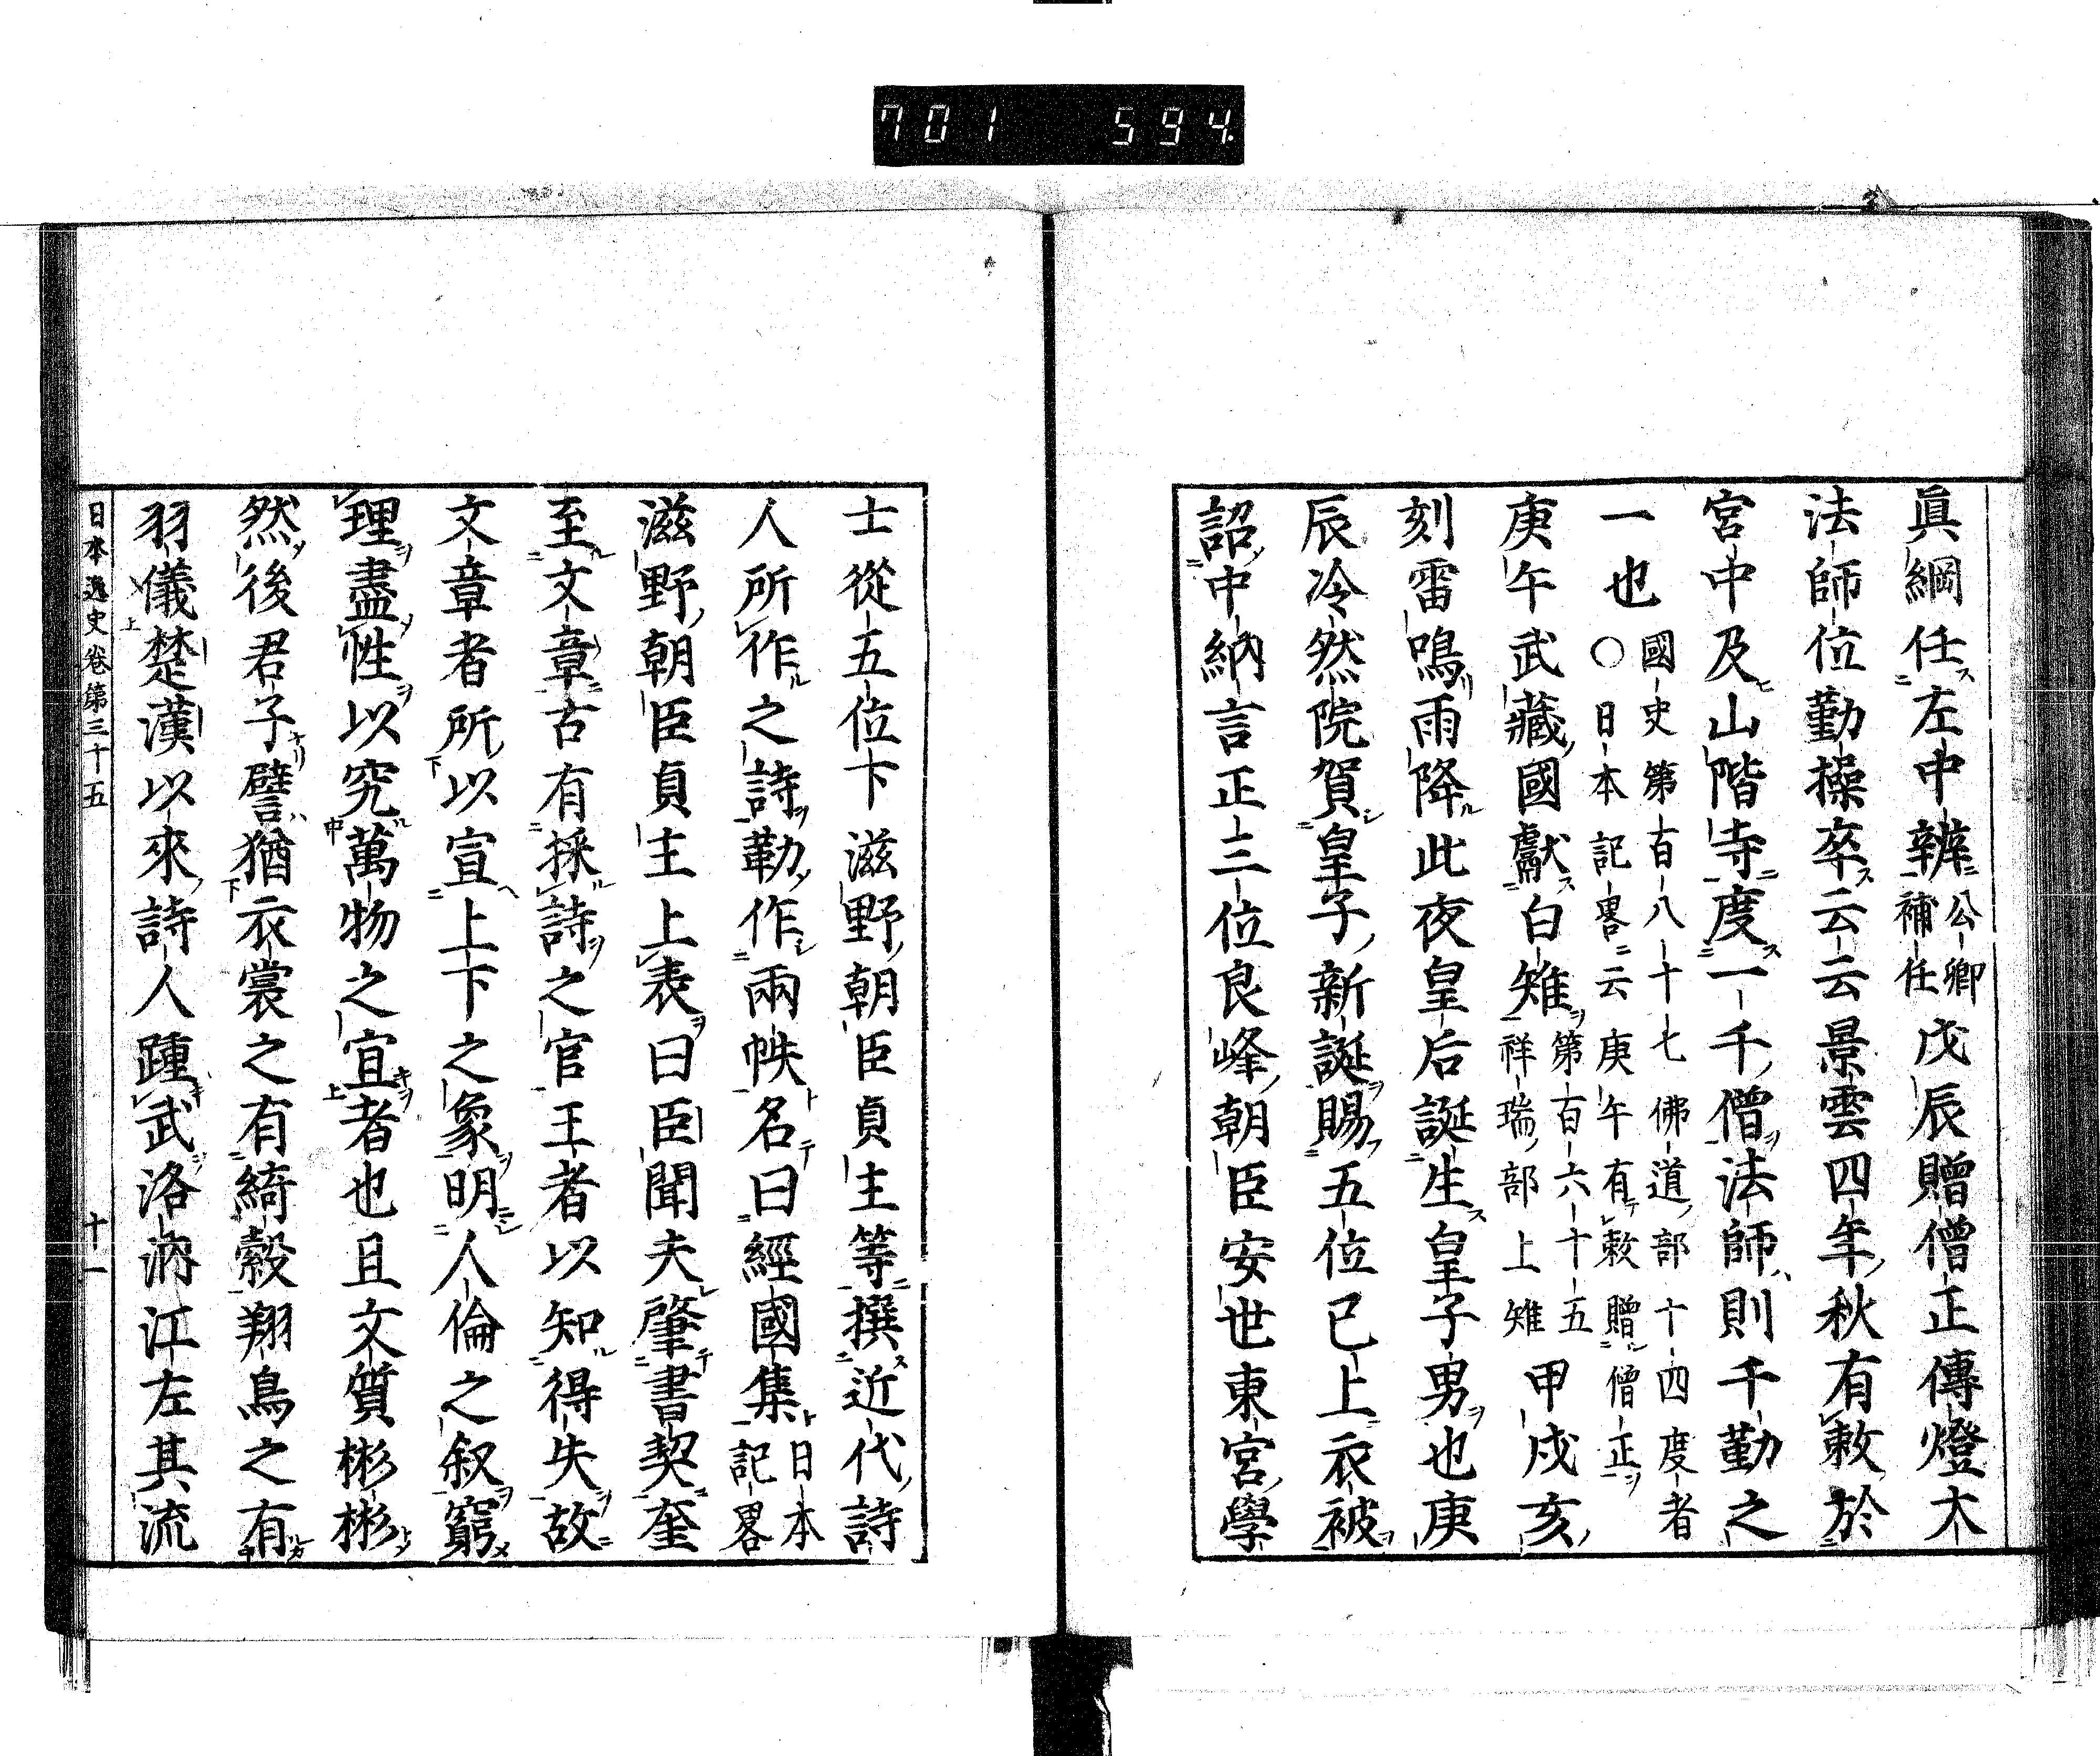 701 594
眞綱任左中辨公卿補任戊辰贈僧正傳燈大
法師位勤操卒云云景雲四年秋有敕於
宮中及山階寺度一千僧法師則千勤之
一也國史第百八十七佛道部十四度者〇日本記畧云庚午有敕贈僧正
庚午武藏國獻白雉第百六十五祥瑞部上雉甲戌亥
刻雷鳴雨降此夜皇后誕生皇子男也庚
辰冷然院賀皇子新誕賜五位已上衣被
詔中納言正三位良峰朝臣安世東宮學
士從五位下滋野朝臣貞主等撰近代詩
人所作之詩勒作兩帙名曰經國集日本記畧
滋野朝臣貞主上表曰臣聞夫肇書契奎
至文章古有採詩之官王者以知得失故
文章者所以宣上下之象明人倫之叙窮
理盡性以究萬物之宜者也且文質彬彬
然後君子譬猶衣裳之有綺縠翔鳥之有
羽儀楚漢以來詩人踵武洛汭江左其流
日本逸史卷第三十五 十一